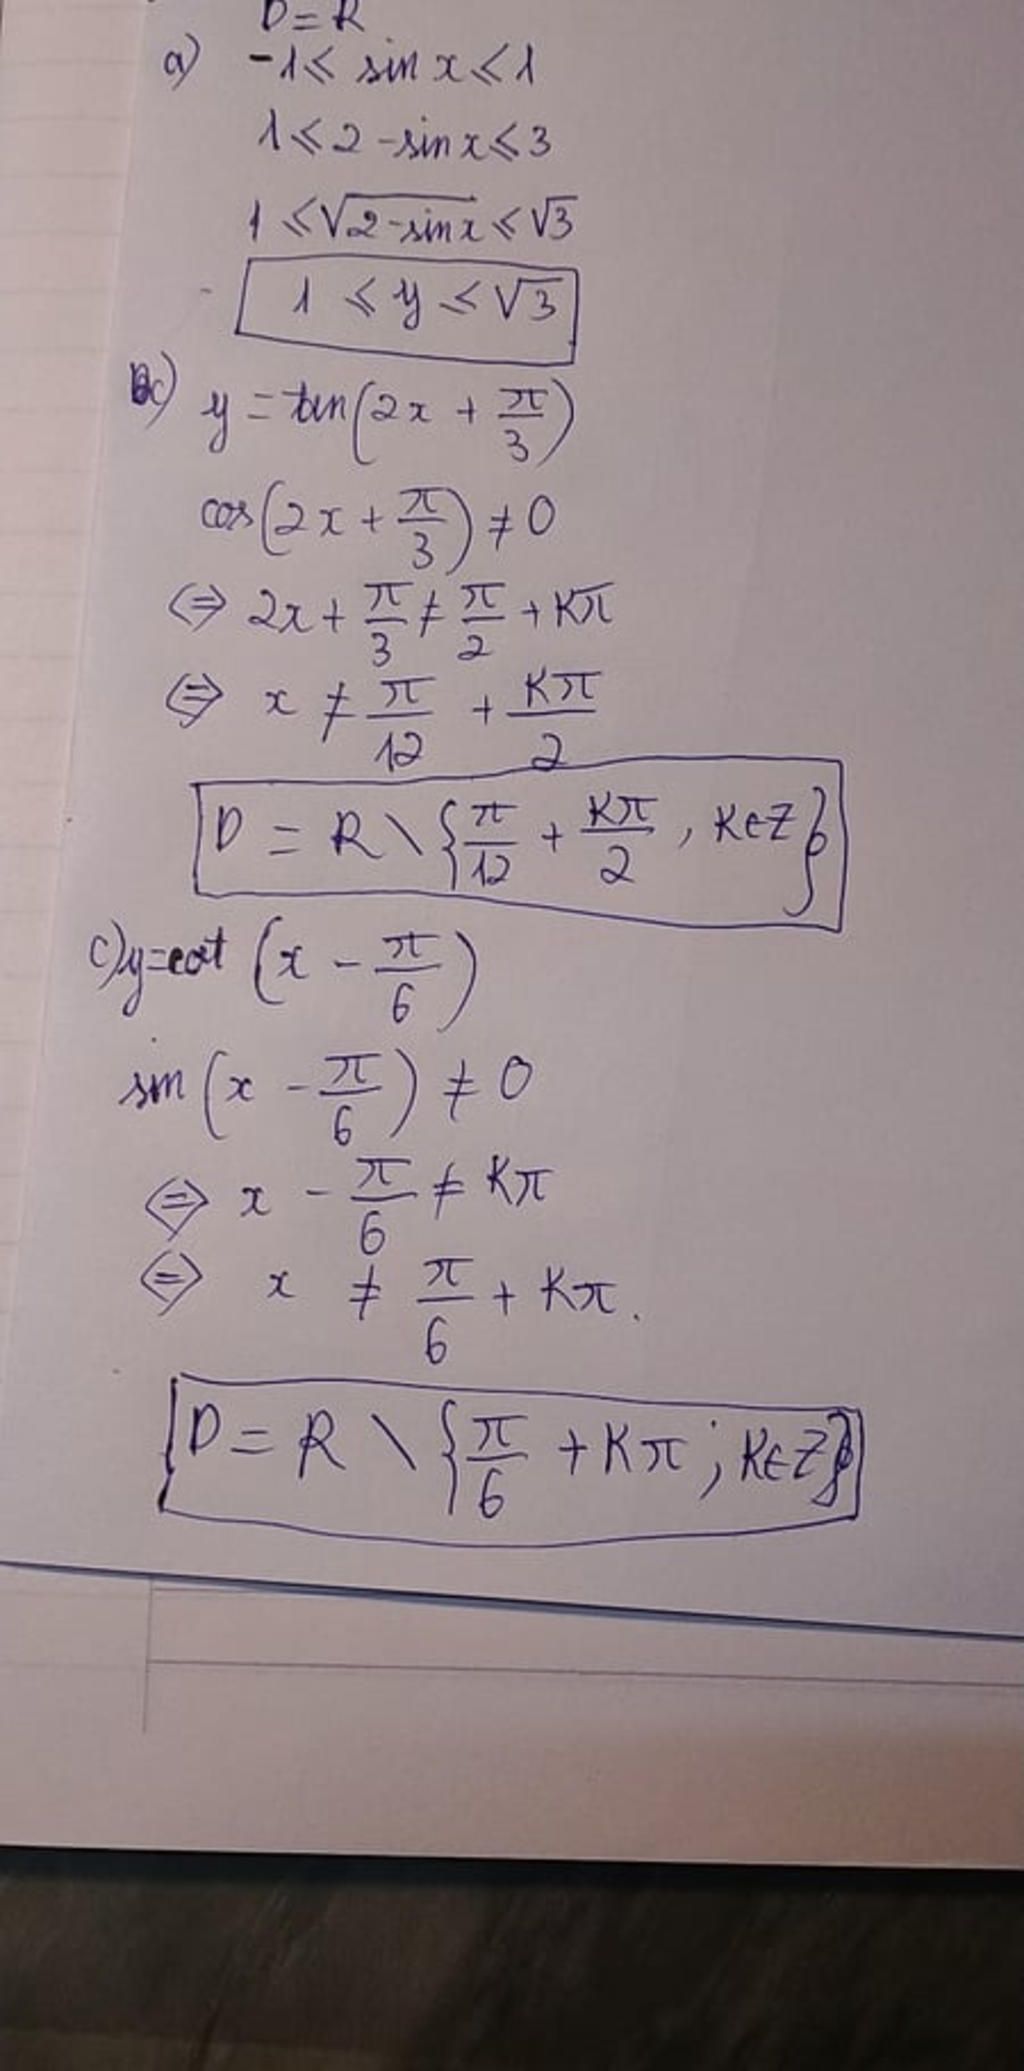 D=R
a) -1 ≤ sin x ≤ 1
1 ≤ 2 - sin x ≤ 3
1 ≤ √(2-sin x) ≤ √3
1 ≤ y ≤ √3
y = tan(2x + π/3)
cos(2x + π/3) ≠ 0
⇔ 2x + π/3 ≠ π/2 + Kπ
⇔ x ≠ π/12 + Kπ/2
D = R \ {π/12 + Kπ/2, K∈Z}
c) y=cot (x - π/6)
sin (x - π/6) ≠ 0
⇔ x - π/6 ≠ Kπ
⇔ x ≠ π/6 + Kπ.
D = R \ {π/6 + Kπ; K∈Z}